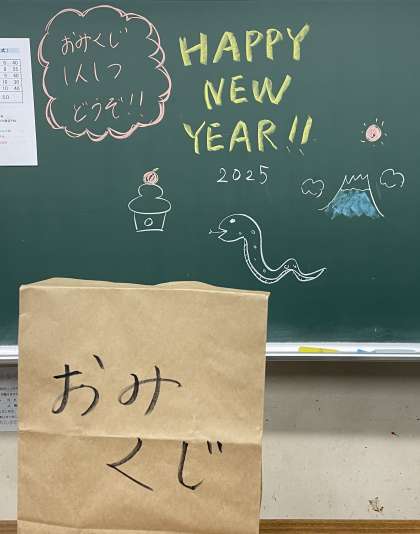 おみくじ
1人1つ
どうぞ!!
HAPPY
NEW
YEAR!!
2025
おみ
くじ